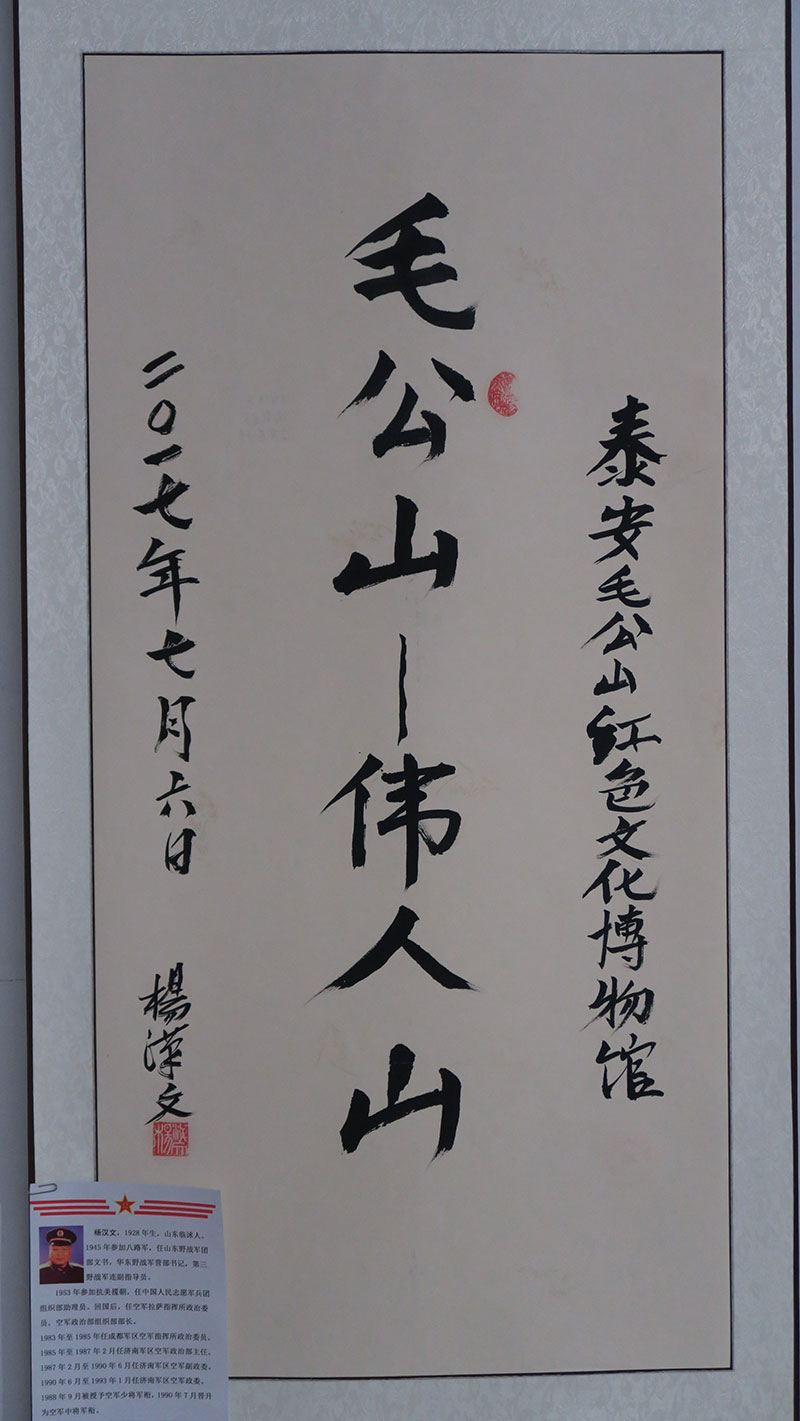 泰安毛公山红色文化博物馆
毛公山—伟人山
二〇一七年七月六日
楊漢文
杨汉文，1928年生，山东临沭人。
1945年参加八路军，任山东野战军团
部文书，华东野战军营部书记，第三
野战军连副指导员。
1953年参加抗美援朝，任中国人民志愿军兵团
组织部助理员。回国后，任空军拉萨指挥所政治委
员，空军政治部组织部部长。
1983年至1985年任成都军区空军指挥所政治委员。
1985年至1987年2月任济南军区空军政治部主任。
1987年2月至1990年6月任济南军区空军副政委。
1990年6月至1993年1月任济南军区空军政委。
1988年9月被授予空军少将军衔，1990年7月晋升
为空军中将军衔。